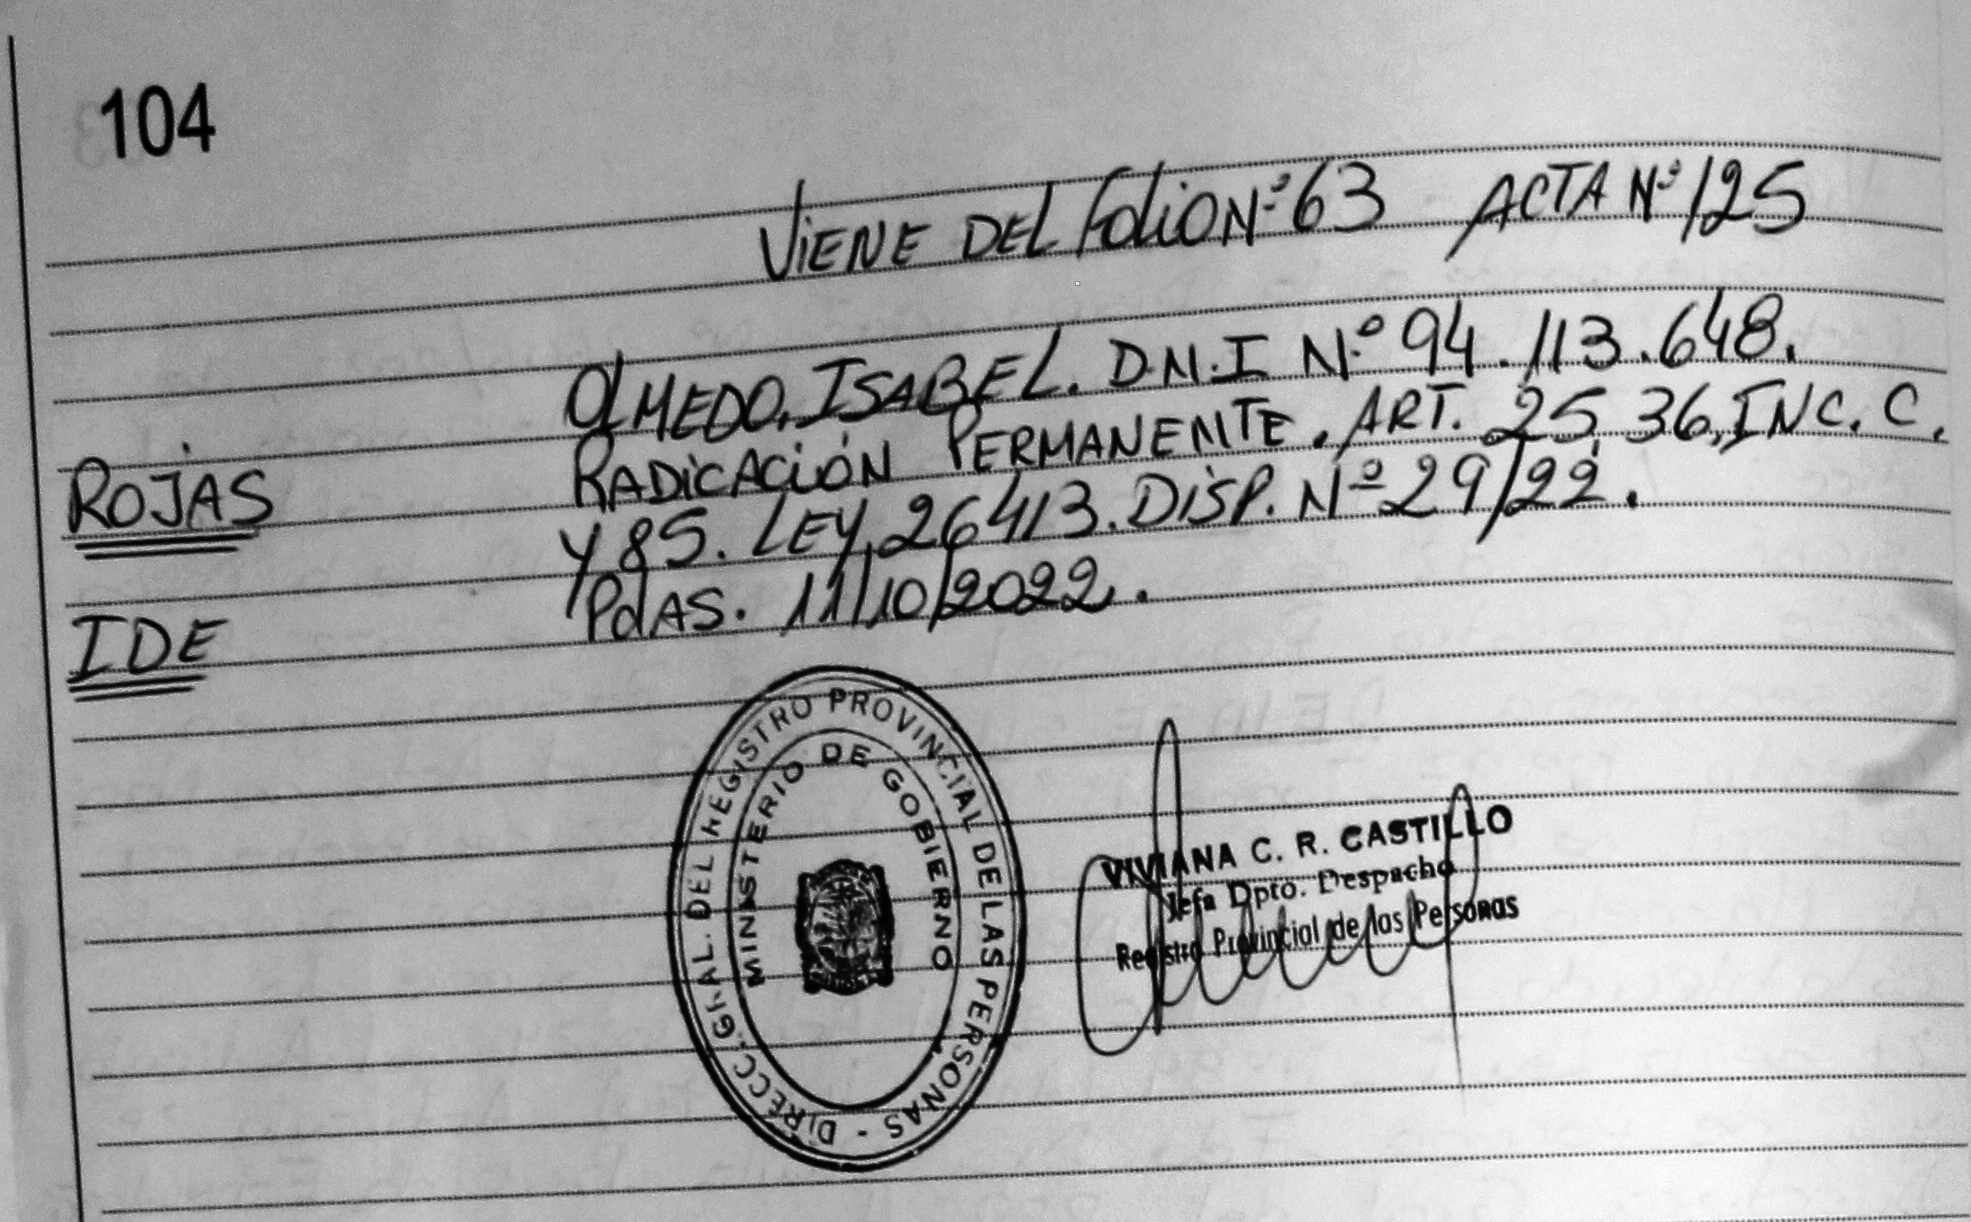 104
VIENE DEL FOLIO Nº 63 ACTA Nº 125
OLMEDO, ISABEL. D.N.I Nº 94.113.648.
RADICACIÓN PERMANENTE. ART. 25, 36, INC. C.
ROJAS
Y 85. LEY, 26413. DISP. Nº 29/22.
PdAS. 11/10/2022.
IDE
DIRECC. GRAL. DEL REGISTRO PROVINCIAL DE LAS PERSONAS -
MINISTERIO DE GOBIERNO
VIVIANA C. R. CASTILLO
Jefa Dpto. Despacho
Registro Provincial de las Personas